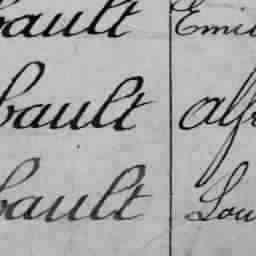 bault Emil
bault Alfr
bault Lou